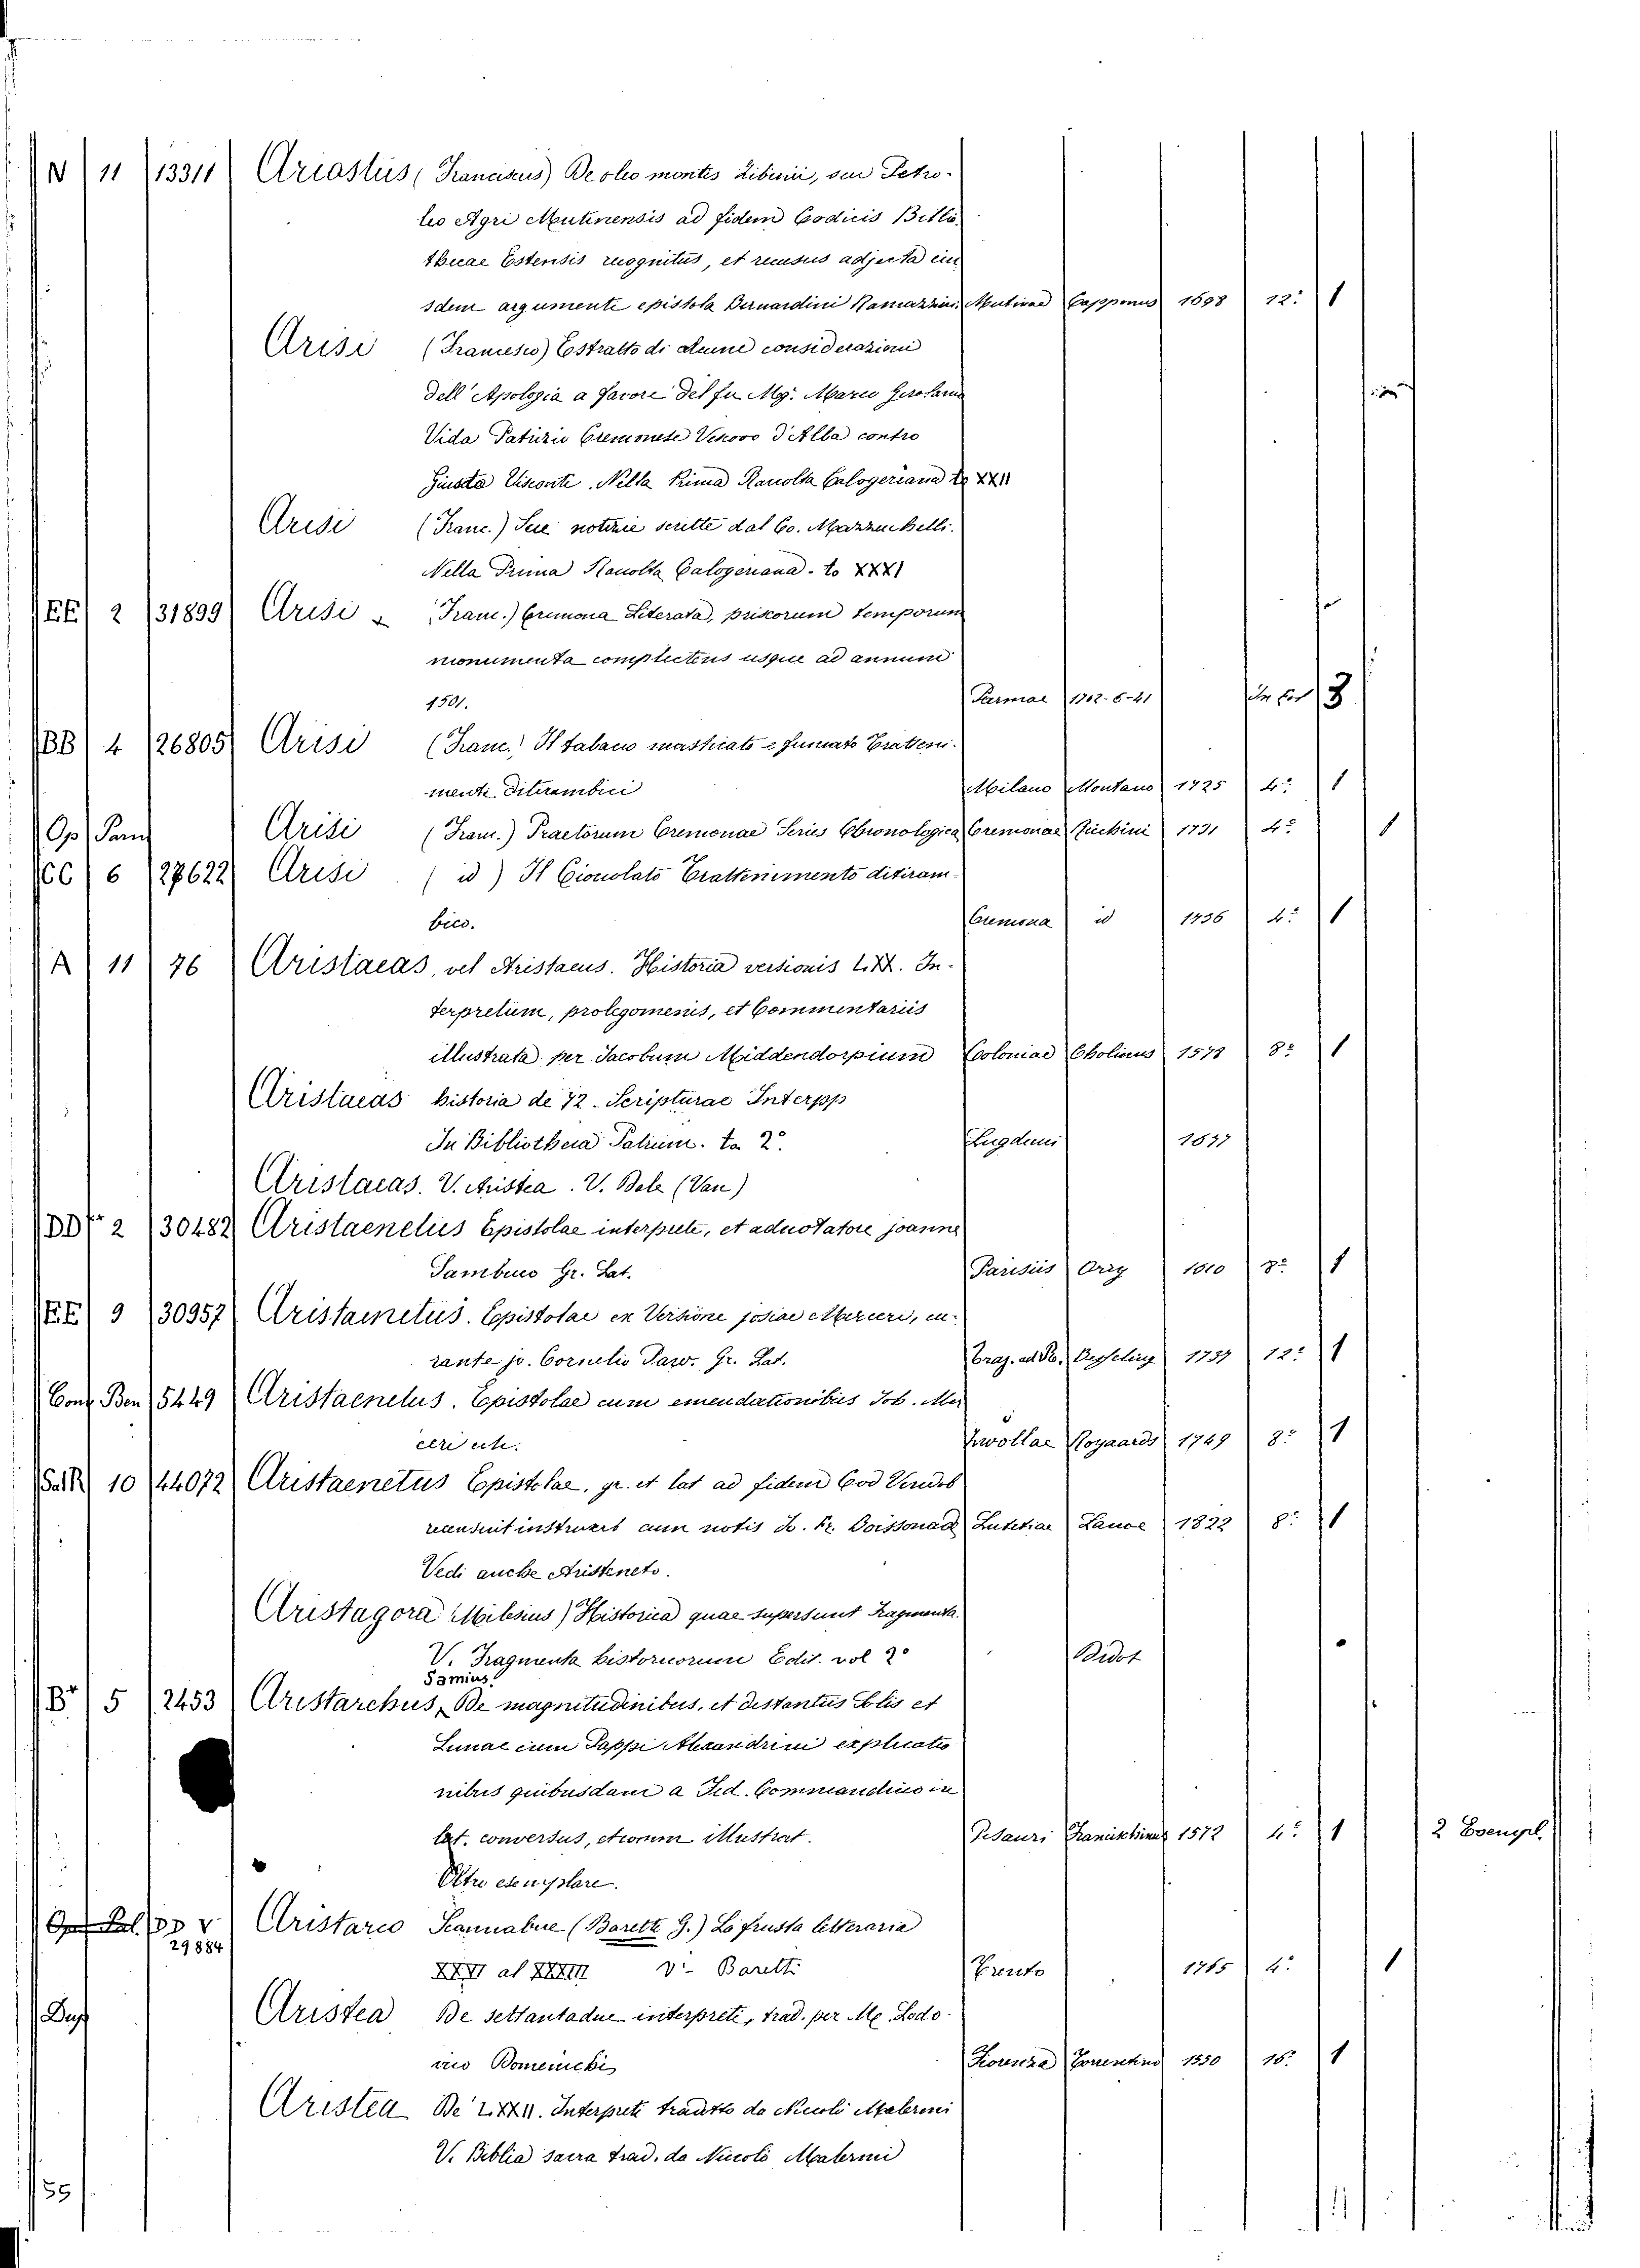 N 11 13311 Ariostus (Franciscus) De oleo montis Zibinii, seu Petro-
leo Agri Mutinensis ad fidem Codicis Biblio
thecae Estensis recognitus, et recusus adjecta eiu
sdem argumenti epistola Bernardini Ramazzini Mutinae Capponus 1698 12º 1
Arisi (Francesco) Estratto di alcune considerazioni
dell'Apologia a favore del fu Mg. Marco Girolamo
Vida Patrizio Cremonese Vescovo d'Alba contro
Giusto Visconti. Nella Prima Raccolta Calogeriana to XXII
Arisi (Franc.) Sue notizie scritte dal Co. Mazzuchelli.
Nella Prima Raccolta Calogeriana. to XXXI
EE 2 31899 Arisi (Franc.) Cremona Literata, priscorum temporum
monumenta complectens usque ad annum
1501. Parmae 1702-6-41 in fol 3
BB 4 26805 Arisi (Franc.) Il tabaco masticato e fumato Tratteni-
menti ditirambici Milano Montano 1725 4º 1
Op Pam Arisi (Franc.) Praetorum Cremonae Series Chronologica Cremonae Ricchini 1731 4º 1
CC 6 27622 Arisi (id) Il Cioccolato Trattenimento ditiram-
bico. Cremona id 1736 4º 1
A 11 76 Aristaeas, vel Aristaeus. Historia versionis LXX. In-
terpretum, prolegomenis, et Commentariis
illustrata per Jacobum Middendorpium Coloniae Cholinus 1578 8º 1
Aristaeas historia de 72. Scripturae Interpp
In Bibliotheca Patrum. to 2º. Lugduni 1677
Aristaeas. V. Aristea. V. Dale (Van)
DD 2 30482 Aristaenetus Epistolae interprete, et adnotatore joanne
Sambuco Gr. Lat. Parisiis Orig 1610 8º 1
EE 9 30957 Aristainetus. Epistolae ex Versione josiae Merceri, cu-
rante jo. Cornelio Paw. Gr. Lat. Traj. ad Rh. Besseling 1737 12º 1
Conv Ben 5449 Aristaenetus. Epistolae cum emendationibus Jos. Mer
ceri etc. Zwollae Royaards 1749 8º 1
Sal R 10 44072 Aristaenetus Epistolae, gr. et lat ad fidem Cod Vindob
recensuit instruxit cum notis Jo. Fr. Boissonad Lutetiae Lanoe 1822 8º 1
Vedi anche Aristeneto.
Aristagora Milesius) Historica quae supersunt Fragmenta.
V. Fragmenta historicorum Edit. vol 2º Didot
Samius
B 5 2453 Aristarchus, De magnitudinibus, et distantiis Solis et
Lunae cum Pappi Alexandrini explicatio
nibus quibusdam a Fed. Commandino in
lat. conversus, Pisauri Francischinus 1572 4º 1 2 Esempl.
Altro esemplare.
Op Pal. DD V Aristarco Scannabue (Baretti G.) La frusta letteraria
29884
XXVI al XXXIII v:- Baretti Trento 1765 4º 1
Dup Aristea De settantadue interpreti, trad. per M. Lodo-
vico Domenichi Fiorenza Torrentino 1550 16º 1
Aristea De LXXII. Interpreti tradotto da Nicolò Malermi
V. Biblia sacra trad. da Nicolò Malermi
55